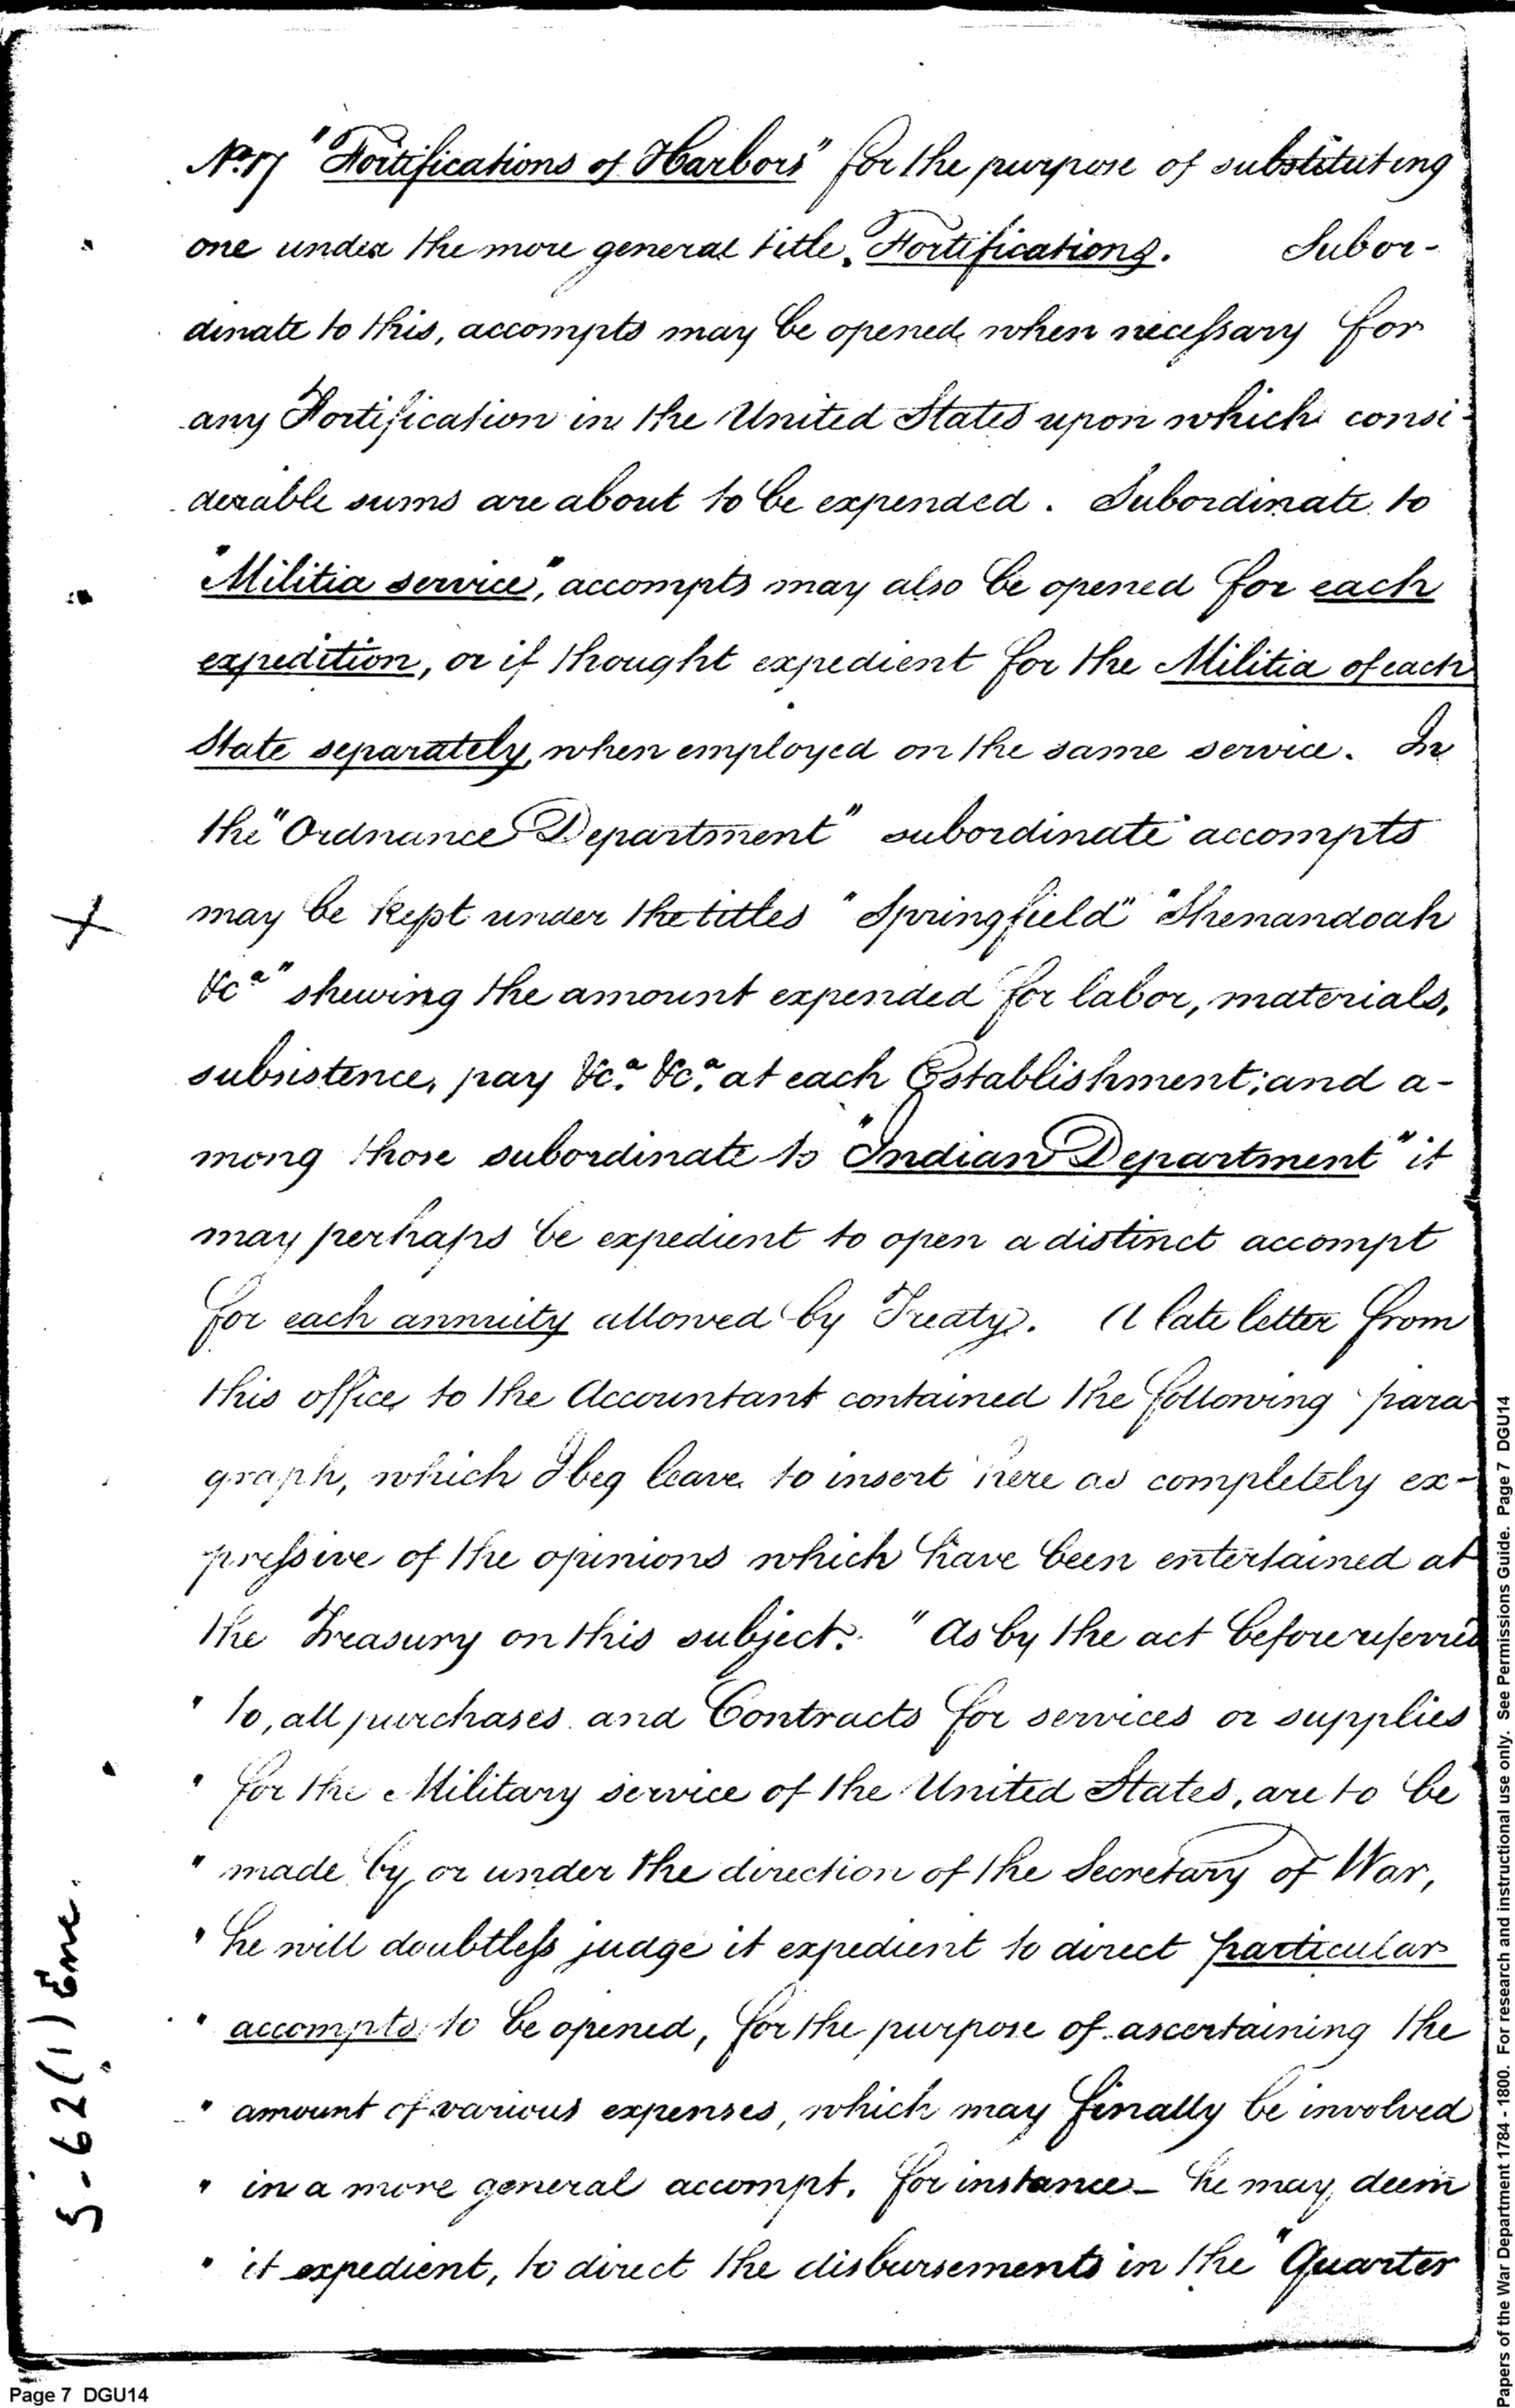 No. 17 "Fortifications of Harbors" for the purpose of substituting
one under the more general title, Fortifications. Subor-
dinate to this, accompts may be opened, when necessary for
any Fortification in the United States upon which consi-
derable sums are about to be expended. Subordinate to
"Militia service", accompts may also be opened for each
expedition, or if thought expedient for the Militia of each
State separately, when employed on the same service. In
the "Ordnance Department" subordinate accompts
may be kept under the titles "Springfield" "Shenandoah
&ca" shewing the amount expended for labor, materials,
subsistence, pay &ca. &ca. at each Establishment; and a-
mong those subordinate to "Indian Department" it
may perhaps be expedient to open a distinct accompt
for each annuity allowed by Treaty. A late letter from
this office to the Accountant contained the following para-
graph, which I beg leave to insert here as completely ex-
pressive of the opinions which have been entertained at
the Treasury on this subject. "As by the act before referred
" to, all purchases and Contracts for services or supplies
" for the Military service of the United States, are to be
" made by or under the direction of the Secretary of War,
" he will doubtless judge it expedient to direct particular
" accompts to be opened, for the purpose of ascertaining the
" amount of various expenses, which may finally be involved
" in a more general accompt. for instance – he may deem
" it expedient, to direct the disbursements in the "Quarter
X
5-62(1) Enc.
Page 7 DGU14
Papers of the War Department 1784 - 1800. For research and instructional use only. See Permissions Guide. Page 7 DGU14